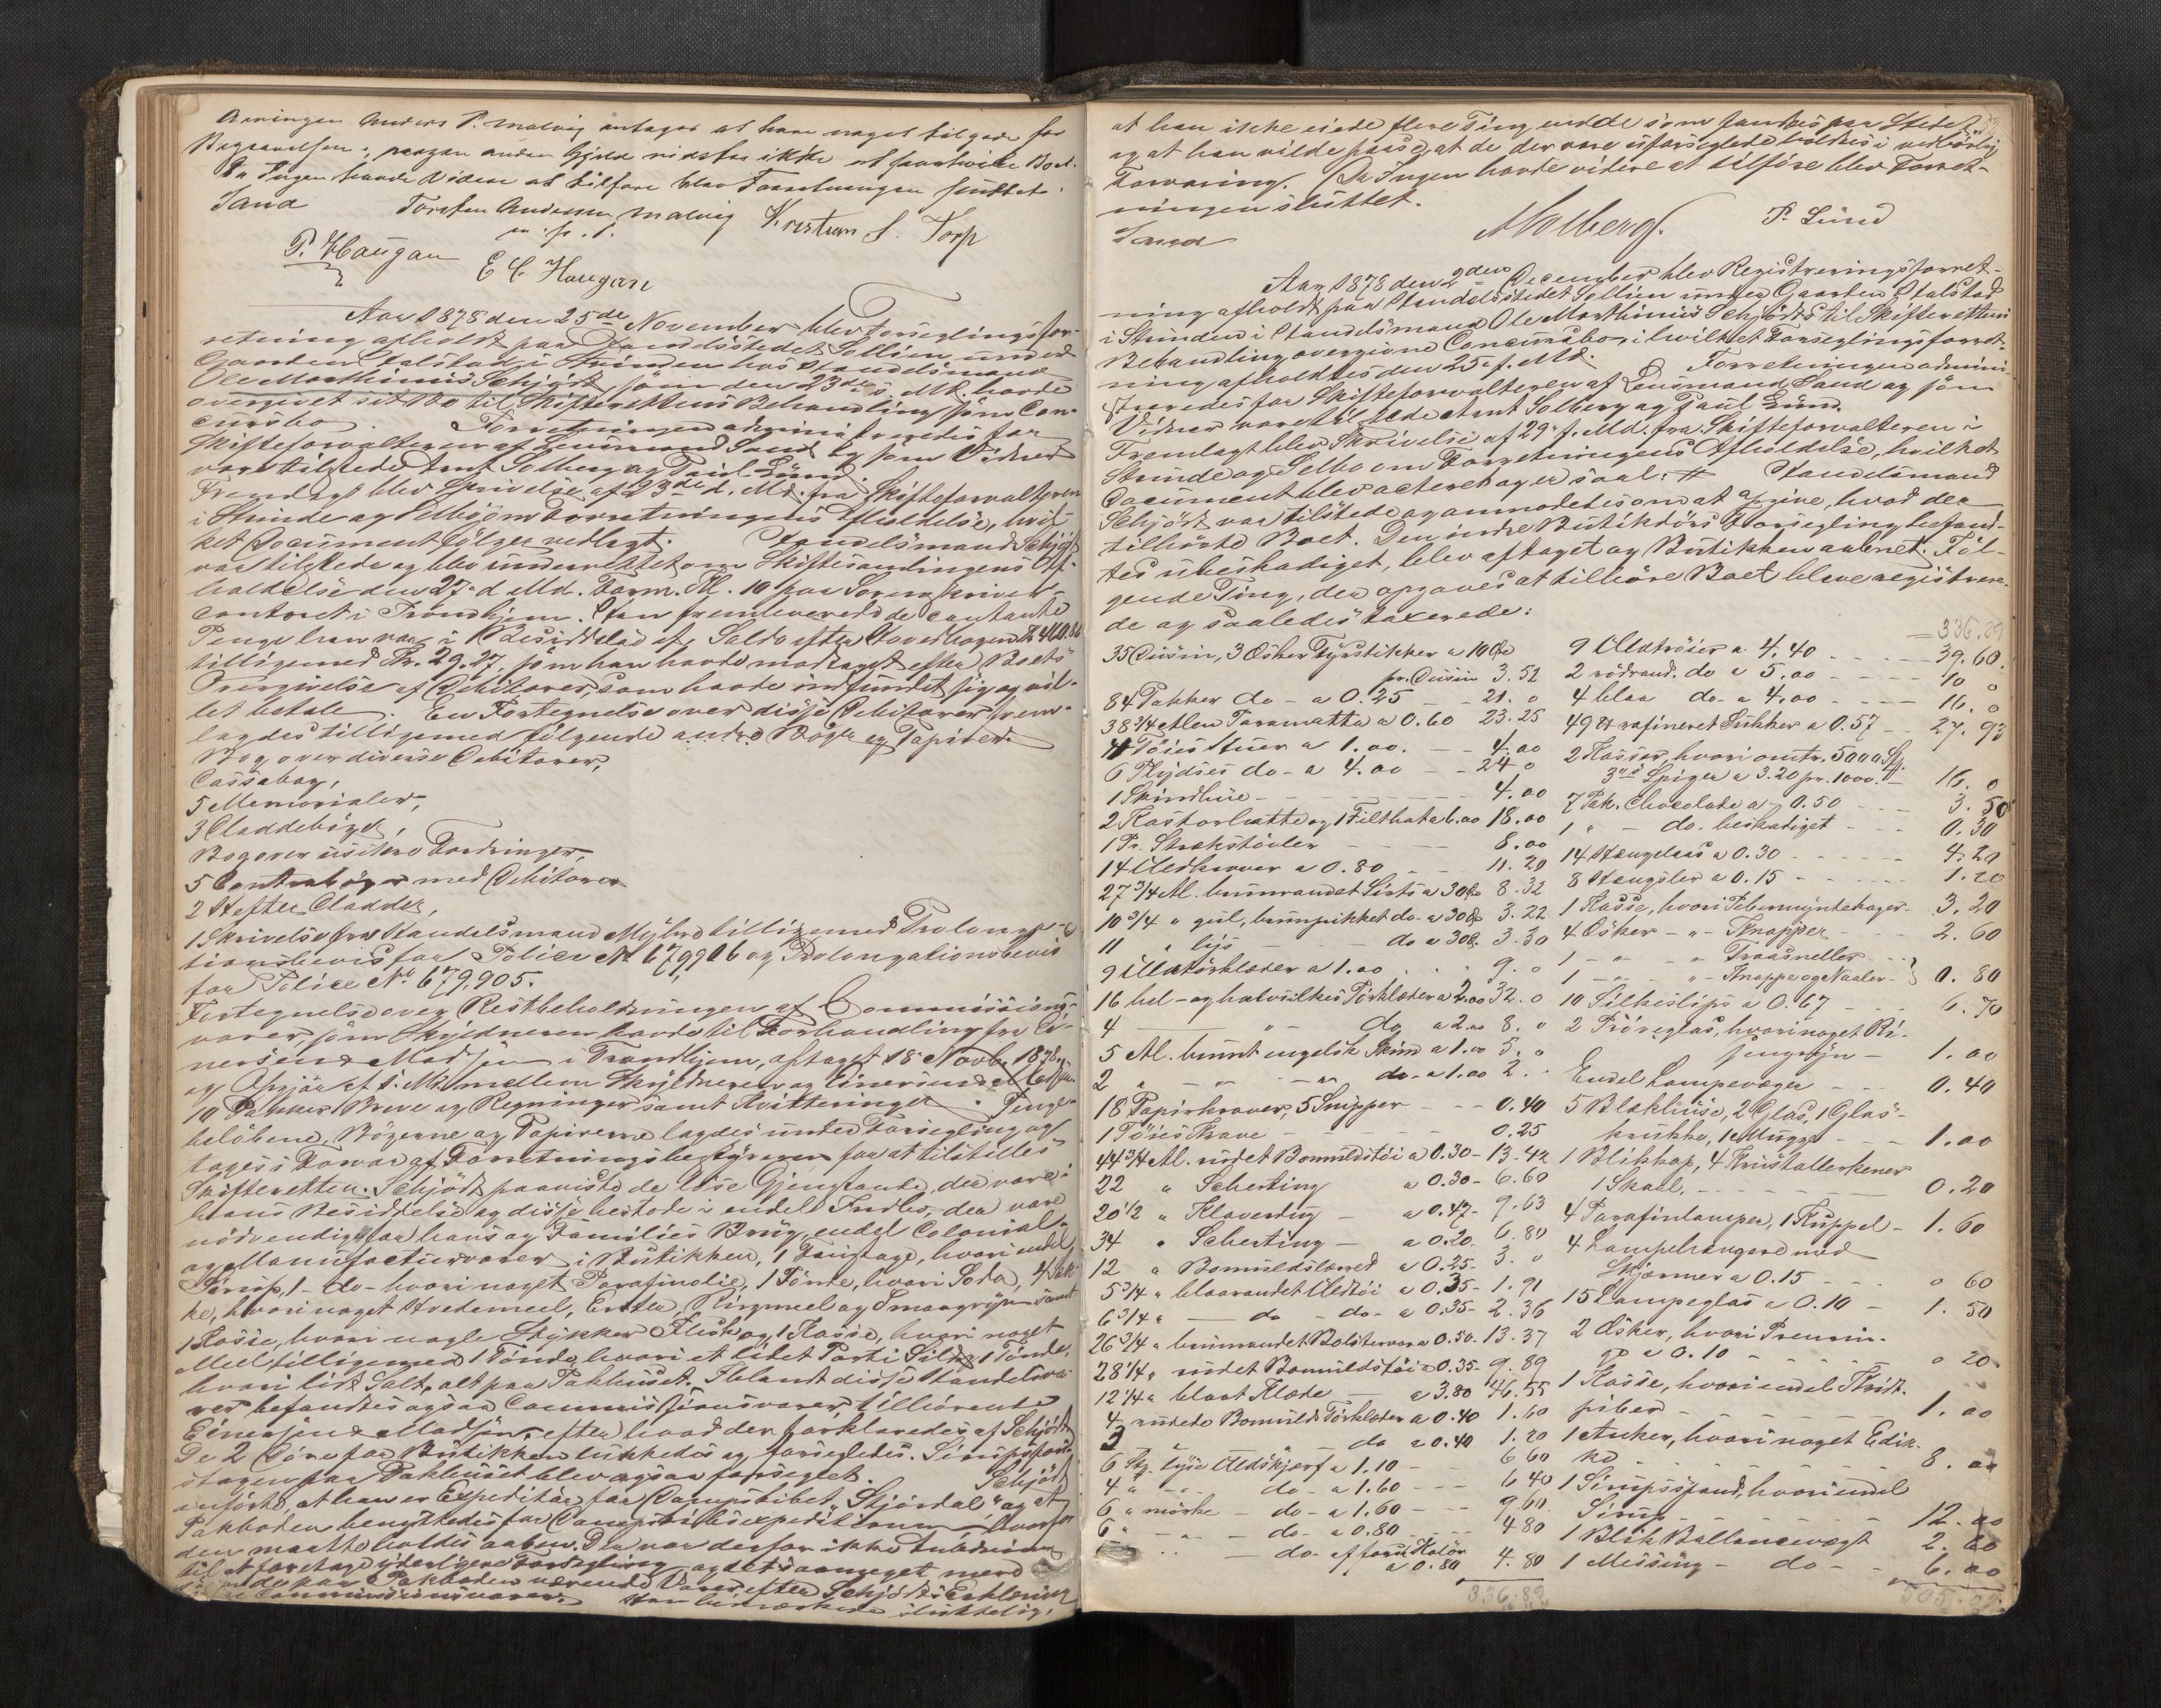 Arvingen Anders P. Malvig antages at have noget tilgode for
Begravelsen; nogen anden Gjæld vidstes ikke at paahvile Boet.
Da Ingen havde Videre at tilføre blev Forretningen sluttet.
Sand Torsten Andersen Malvig Kristian S. Torp
m. f. P.
P. Haugan E C. Haugan
Aar 1878 den 25de November blev Forseglingsfor-
retning afholdt paa Handelsstedet Sollien under
Gaarden Stalstad i Strinden hos Handelsmand
Ole Marthinius Schjødt, som den 23de s. Md. havde
overgivet sit Bo til Skifterettens Behandling som Con-
cursbo. Forretningen administreredes for
Skifteforvalteren af Lensmand Sand og som Vidner
vare tilstede Arnt Solberg og Paul Lund.
Fremlagt blev Skrivelse af 23de d. Md. fra Skifteforvalteren
i Strinde og Selbu om Forretningens Afholdelse, hvil-
ket Document følger vedlagt. Handelsmand Schjødt
var tilstede og blev underrettet om Skiftesamlingens Af-
holdelse den 27. d. Md. Form. Kl. 10 paa Sorenskriver-
contoret i Trondhjem. Han fremleverede de contante
Penge han var i Besiddelse af, Saldo efter Hovedbogen Kr. 460.80
tilligemed Kr. 29.27, som han havde modtaget efter Boets
Overgivelse af Debitorer, som havde indfundet sig og vil-
let betale. En Fortegnelse over disse Debitorer frem-
lagdes tilligemed følgende andre Bøger og Papirer:
Bog over diverse Debitorer,
Cassabog,
5 Memorialer,
3 Claddebøger,
Bog over usikre Fordringer,
5 Contrabøger med Debitorer
2 Hefter Cladder,
1 Skrivelse fra Handelsmand Myhre tilligemed Prolonga-
tionsbevis for Police No 679,906 og Prolongationsbevis
for Police No 679,905.
Fortegnelse over Restbeholdningen af Commissions-
varer, som Skyldneren havde til Forhandling fra Ei-
nersen & Madsen i Trondhjem, aftaget 18 Novb. 1878,
og Opgjør af s. Md. mellem Skyldneren og Einersen & Madsen.
10 Pakker Breve og Regninger samt Kvitteringer. Penge-
beløbene, Bøgerne og Papirerne lagdes under Forsegling og
toges i Forvar af Forretningsbestyreren for at tilstilles
Skifteretten. Schjødt paaviste de løse Gjenstande, der vare i
hans Besiddelse og disse bestode i endel Indbo, der vare
nødvendige for hans og Families Brug, endel Colonial-
og Manufacturvarer i Butikken, 1 Foustage, hvori endel
Sirup, 1 – do – hvori noget Parafinolie, 1 Tønde, hvori Soda, 4 Sæk-
ke, hvori noget Hvedemeel, Erter, Rugmeel og Smaagryn samt
1 Kasse, hvori nogle Stykker Flesk og 1 Kasse, hvori noget
Meel tilligemed 1 Tønde, hvori et lidet Parti Sild og 1 Tønde,
hvori lidt Salt, alt paa Pakhuset. Iblandt disse Handelsva-
rer befandtes ogsaa Commissionsvarer tilhørende
Einersen & Madsen, efter hvad der forklaredes af Schjødt.
De 2 Døre for Butikken lukkedes og forsegledes. Sirupsfou-
stagen paa Pakhuset blev ogsaa forseglet. Schjødt
anførte, at han er Expeditør for Dampskibet "Stjørdal" og at
Pakboden benyttedes for Dampskibsexpeditionen, hvorfor
den maatte holdes aaben. Der var derfor ikke Anledning
til at foretage yderligere Forsegling og det saameget mere
paa Pakboden værende Varer efter Schjødts Erklæring
Commissionsvarer. Han bemærkede sluttelig,
at han ikke eiede flere Ting end de som fandtes paa Stedet
og at han vilde passe, at de der vare uforseglede holdtes i vedbørlig
Forvaring. Da Ingen havde videre at tilføre blev Forret-
ningen sluttet.
Sand ASolberg. P. Lund
Aar 1878 den 2den December blev Registreringsforret-
ning afholdt paa Handelsstedet Sollien under Gaarden Stalstad
i Strinden i Handelsmand Ole Marthinius Schjødts til Skifterettens
Behandling overgivne Concursbo, i hvilket Forseglingsforret-
ning afholdtes den 25. f. Md. Forretningen admini-
streredes for Skifteforvalteren af Lensmand Sand og som
Vidner vare tilstede Arnt Solberg og Paul Lund.
Fremlagt blev Skrivelse af 29. f. Md. fra Skifteforvalteren i
Strinde og Selbu om Forretningens Afholdelse, hvilket
Document blev acteret og er saal: # Handelsmand
Schjødt var tilstede og anmodedes om at opgive, hvad der
tilhørte Boet. Den indre Butikdørs Forsegling befand-
tes ubeskadiget, blev aftaget og Butikken aabnet. Føl-
gende Ting, der opgaves at tilhøre Boet bleve registrere-
de og saaledes taxerede:
35 Dusin, 3 Æsker Fyrstikker a 10 Øre
pr. Dusin 3.52
84 Pakker do – a 0.25 – – 21. 0
38 3/4 Alen Paramatta a 0.60 23.25
4 Tøies Huer a 1.00. – – 4.00
6 Plydses do – a 4.00 – – 24 0
1 Skindhue – – – 4.00
2 Kastorhatte og 1 Filthat a 6.00 18.00
1 Pr. Strækstøvler – – 8.00
14 Uldkraver a 0.80 – – 11.20
27 3/4 Al. brunrandet Sirts a 30 Ø 8.32
10 3/4 " gul, brunprikket do – a 30 Ø 3.22
11 " lys – – do a 30 Ø 3.30
9 Uldtørklæder a 1.00 . . . 9. 0
16 hel- og halvsilkes Tørklæder a 2.00 32. 0
4 – " – do a 2.00 8. 0
5 Al. brunt engelsk Skind a 1.00 5. 0
2 " – " – do – a 1.00 2. "
18 Papirkraver, 5 Snipper – – 0.40
1 Tøies Krave – – 0.25
44 3/4 Al. rudet Bomuldstøi a 0.30 – 13.42
22 " Scherting a 0.30 – 6.60
20 1/2 " Klaverdug – a 0.47 – 9.63
34 " Scherting – a 0.20 6.80
12 " Bomuldslærred a 0.25 – 3. 0
5 3/4 " blaarandet Uldtøi a 0.35 – 1.91
6 3/4 " – do – do – a 0.35 – 2.36
26 3/4 " brunrandet Bolstervar a 0.50. 13.37
28 1/4 " rudet Bomuldstøi a 0.35 – 9.89
12 1/4 " blaat Klæde – a 3.80 46.55
4 rudede Bomulds Tørklæder a 0.40 1.60
3 do a 0.40 1.20
6 Stk. lyse Uldskjærf a 1.10 – 6 60
4 " – " – do – a 1.60 – – – 6 40
6 " mørke – do – a 1.60 – – – 9.60
6 " – " – do – a 0.80 – – 4 80
do – af forsk. Kolør
a 0.80 4.80
336.89
= 336.89
9 Uldtrøier a 4.40 – – – 39.60.
2 rødrand. do a 5.00 – – – 10 0
4 blaa do – a 4.00 – – – 16. 0
49 ℔ rafineret Sukker a 0.57 – – 27.93
2 Kasser, hvori omtr. 5000 Stk.
3" Spiger a 3.20 pr. 1000. – 16. 0
7 Pak. Chocolade a 0.50 – – – 3.50
1 " – do. beskadiget – – 0.30
14 Hængelaas a 0.30 – – – 4.20
8 Hengsler a 0.15 – – – 1.20
1 Kasse, hvori Pebermyntekager – 3.20
4 Æsker – " – Knapper – – 2.60
1 – " – " – Traasneller – –
1 – " – " – Knappe og Naaler – } 0.80
10 Silkeslips a 0.67 – – 6.70
2 Prøveglas, hvori noget Ri-
sengryn – 1.00
Endel Lampevæger – – 0.40
5 Blækhuse, 2 Glas, 1 Glas-
krukke, 1 Mugge – – – 1.00
1 Blikkop, 4 Krustallerkener
1 Skaal, – – – 0.20
4 Parafinlamper, 1 Kuppel – 1.60
4 Lampehængere med
Skjærmer a 0.15 – – – 0 60
15 Lampeglas a 0.10 – 1.50
2 Æsker, hvori
a 0.10 – – – 0 20
1 Kasse, hvori endel Kridt-
piber – – – 1.00
1 Anker, hvori noget Edik-
ke – – – 8.00
1 Sirupsspand, hvori endel
Sirup – – – 12.00
1 Blik Ballancevægt 2.00
1 Messing – do – – 6.00